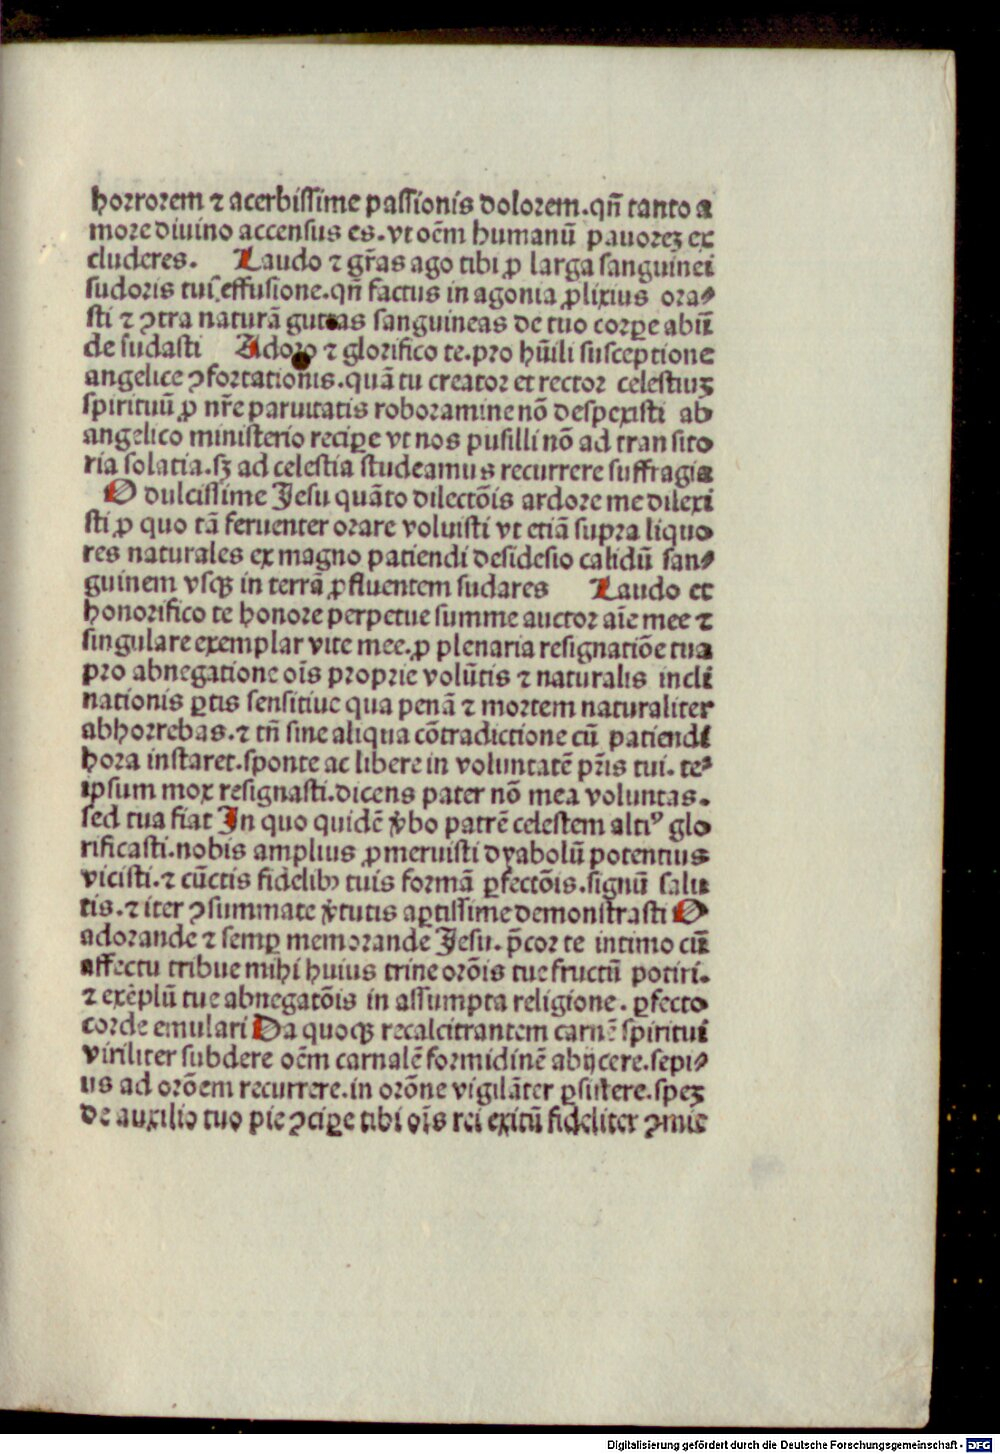 horrorem ⁊ acerbissime passionis dolorem.qñ tanto a
more diuino accensus es.vt oēm humanū pauoreꝫ ex
cluderes. Laudo ⁊ gr̄as ago tibi ꝓ larga sanguinei
sudoris tui effusione.qñ factus in agonia ꝓlixius ora⸗
sti ⁊ ꝯtra naturā guttas sanguineas de tuo corꝑe abū
de sudasti Adoro ⁊ glorifico te.pro hūili susceptione
angelice ꝯfortationis.quā tu creator et rector celestiuꝫ
spirituū ꝓ nr̄e paruitatis roboramine nō despexisti ab
angelico ministerio reciꝑe vt nos pusilli nō ad transito
ria solatia.sꝫ ad celestia studeamus recurrere suffragia
O dulcissime Jesu quāto dilectōis ardore me dilexi
sti ꝓ quo tā feruenter orare voluisti vt etiā supra liquo
res naturales ex magno patiendi desidesio calidū san⸗
guinem vsqꝫ in terrā ꝓfluentem sudares Laudo et
honorifico te honore perpetue summe auctor aīe mee ⁊
singulare exemplar vite mee.ꝓ plenaria resignatiōe tua
pro abnegatione oīs proprie volūtis ⁊ naturalis incli
nationis ꝑtis sensitiue qua penā ⁊ mortem naturaliter
abhorrebas.⁊ tñ sine aliqua cōtradictione cū patiendi
hora instaret.sponte ac libere in voluntatē pr̄is tui. te⸗
ipsum mox resignasti.dicens pater nō mea voluntas.
sed tua fiat In quo quidē v̄bo patrē celestem altiꝰ glo
rificasti.nobis amplius ꝓmeruisti dyabolū potentius
vicisti.⁊ cūctis fidelibꝫ tuis formā ꝑfectōis.signū salu
tis.⁊ iter ꝯsummate v̄tutis aꝑtissime demonstrasti O
adorande ⁊ semꝑ memorande Jesu. p̄cor te intimo cū
affectu tribue mihi huius trine orōis tue fructū potiri.
⁊ exēplū tue abnegatōis in assumpta religione. ꝑfecto
corde emulari Da quoqꝫ recalcitrantem carnē spiritui
viriliter subdere oēm carnalē formidinē abijcere.sepi⸗
us ad orōem recurrere.in orōne vigilāter ꝑsistere.speꝫ
de auxilio tuo pie ꝯciꝑe tibi oīs rei exitū fideliter ꝯmit
Digitalisierung gefördert durch die Deutsche Forschungsgemeinschaft - DFG